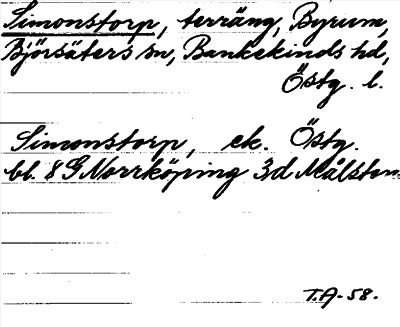 Simonstorp, terräng, Byrum,
Björsäters sn, Bankekinds hd,
Östg. l.
Simonstorp, ek. Östg.
bl. 8 G Norrköping 3d Målsten
T.A-58.